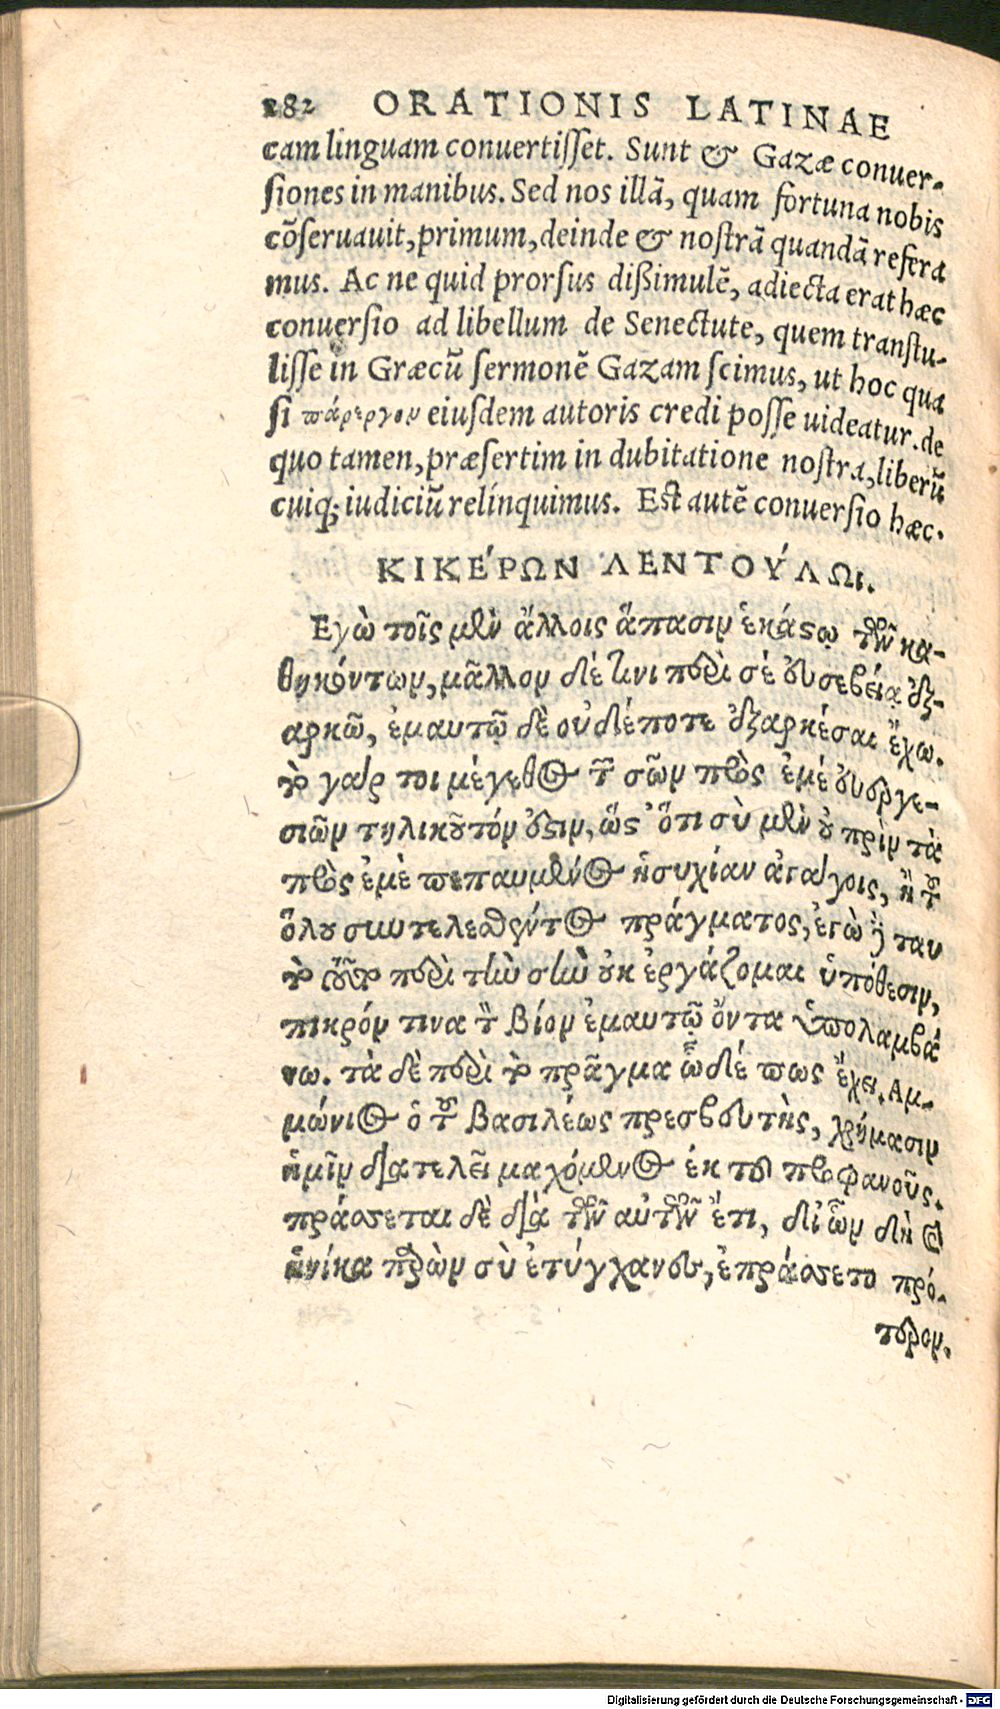 282 ORATIONIS LATINAE
cam linguam conuertisset. Sunt & Gazæ conuer-
siones in manibus. Sed nos illã, quam fortuna nobis
cõseruauit, primum, deinde & nostrã quandã refera
mus. Ac ne quid prorsus dißimulẽ, adiecta erat hæc
conuersio ad libellum de Senectute, quem transtu-
lisse in Græcũ sermonẽ Gazam scimus, ut hoc qua
si πάρεργον eiusdem autoris credi posse uideatur. de
quo tamen, præsertim in dubitatione nostra, liberũ
cuiq; iudiciũ relínquimus. Est autẽ conuersio hæc.
ΚΙΚΈΡΩΝ ΛΕΝΤΟΎΛΩι.
Εγὼ τοῖς μὲν ἄλλοις ἅπασιν ἑκάστῳ τῶν κα-
θηκόντων, μᾶλλον δέ τινι περὶ σέ εὐσεβείᾳ ἐξ-
αρκῶ, ἐμαυτῷ δὲ οὐδέποτε ἐξαρκέσαι ἔχω.
τὸ γάρ τοι μέγεθος τῶν σῶν πρὸς ἐμέ εὐεργε-
σιῶν τηλικοῦτόν ἐστιν, ὥστ' ὅτι σὺ μὲν οὐ πρὶν τὰ
πρὸς ἐμὲ πεπαυμένος ἡσυχίαν ἀγάγοις, ἢ τοῦ
ὅλου συντελεσθέντος πράγματος, ἐγὼ δὲ ταυ
τὸ τοῦτο περὶ τὴν σὴν οὐκ ἐργάζομαι ὑπόθεσιν,
πικρόν τινα τὸν βίον ἐμαυτῷ ὄντα ὑπολαμβά
νω. τὰ δὲ περὶ τὸ πρᾶγμα ὧδέ πως ἔχει. Αμ-
μώνιος ὁ τοῦ βασιλέως πρεσβευτὴς, χρήμασιν
ἡμῖν διατελεῖ μαχόμενος ἐκ τοῦ προφανοῦς.
πράσσεται δὲ διὰ τῶν αὐτῶν ἔτι, δι' ὧν δὴ καὶ
ἡνίκα παρὼν σὺ ἐτύγχανες, ἐπράσσετο πρό-
τερον.
Digitalisierung gefördert durch die Deutsche Forschungsgemeinschaft - DFG